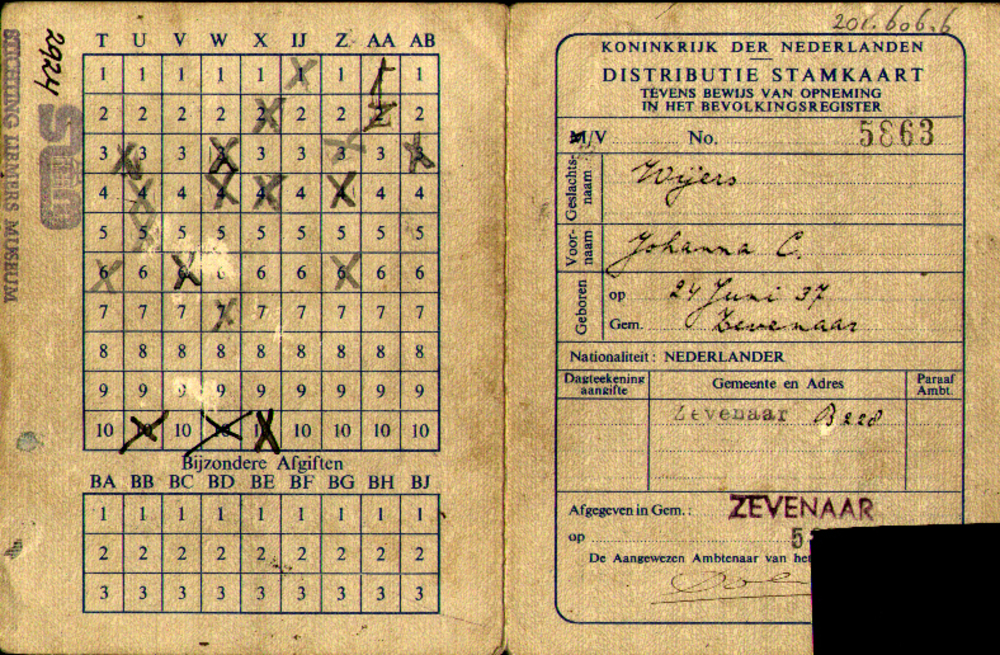 2924
STICHTING LIEMERS MUSEUM
T U V W X IJ Z AA AB
1 1 1 1 1 1 1 1 1
2 2 2 2 2 2 2 2 2
3 3 3 3 3 3 3 3 3
4 4 4 4 4 4 4 4 4
5 5 5 5 5 5 5 5 5
6 6 6 6 6 6 6 6 6
7 7 7 7 7 7 7 7 7
8 8 8 8 8 8 8 8 8
9 9 9 9 9 9 9 9 9
10 10 10 10 10 10 10 10 10
Bijzondere Afgiften
BA BB BC BD BE BF BG BH BJ
1 1 1 1 1 1 1 1 1
2 2 2 2 2 2 2 2 2
3 3 3 3 3 3 3 3 3
201.606.6
KONINKRIJK DER NEDERLANDEN
DISTRIBUTIE STAMKAART
TEVENS BEWIJS VAN OPNEMING
IN HET BEVOLKINGSREGISTER
M/V No. 5863
Geslachts-
naam
Wijers
Voor-
naam
Johanna C.
Geboren
op 24 Juni 37
Gem. Zevenaar
Nationaliteit: NEDERLANDER
Dagteekening
aangifte
Gemeente en Adres
Paraaf
Ambt.
Zevenaar B 228
Afgegeven in Gem.: ZEVENAAR
op 5
De Aangewezen Ambtenaar van het